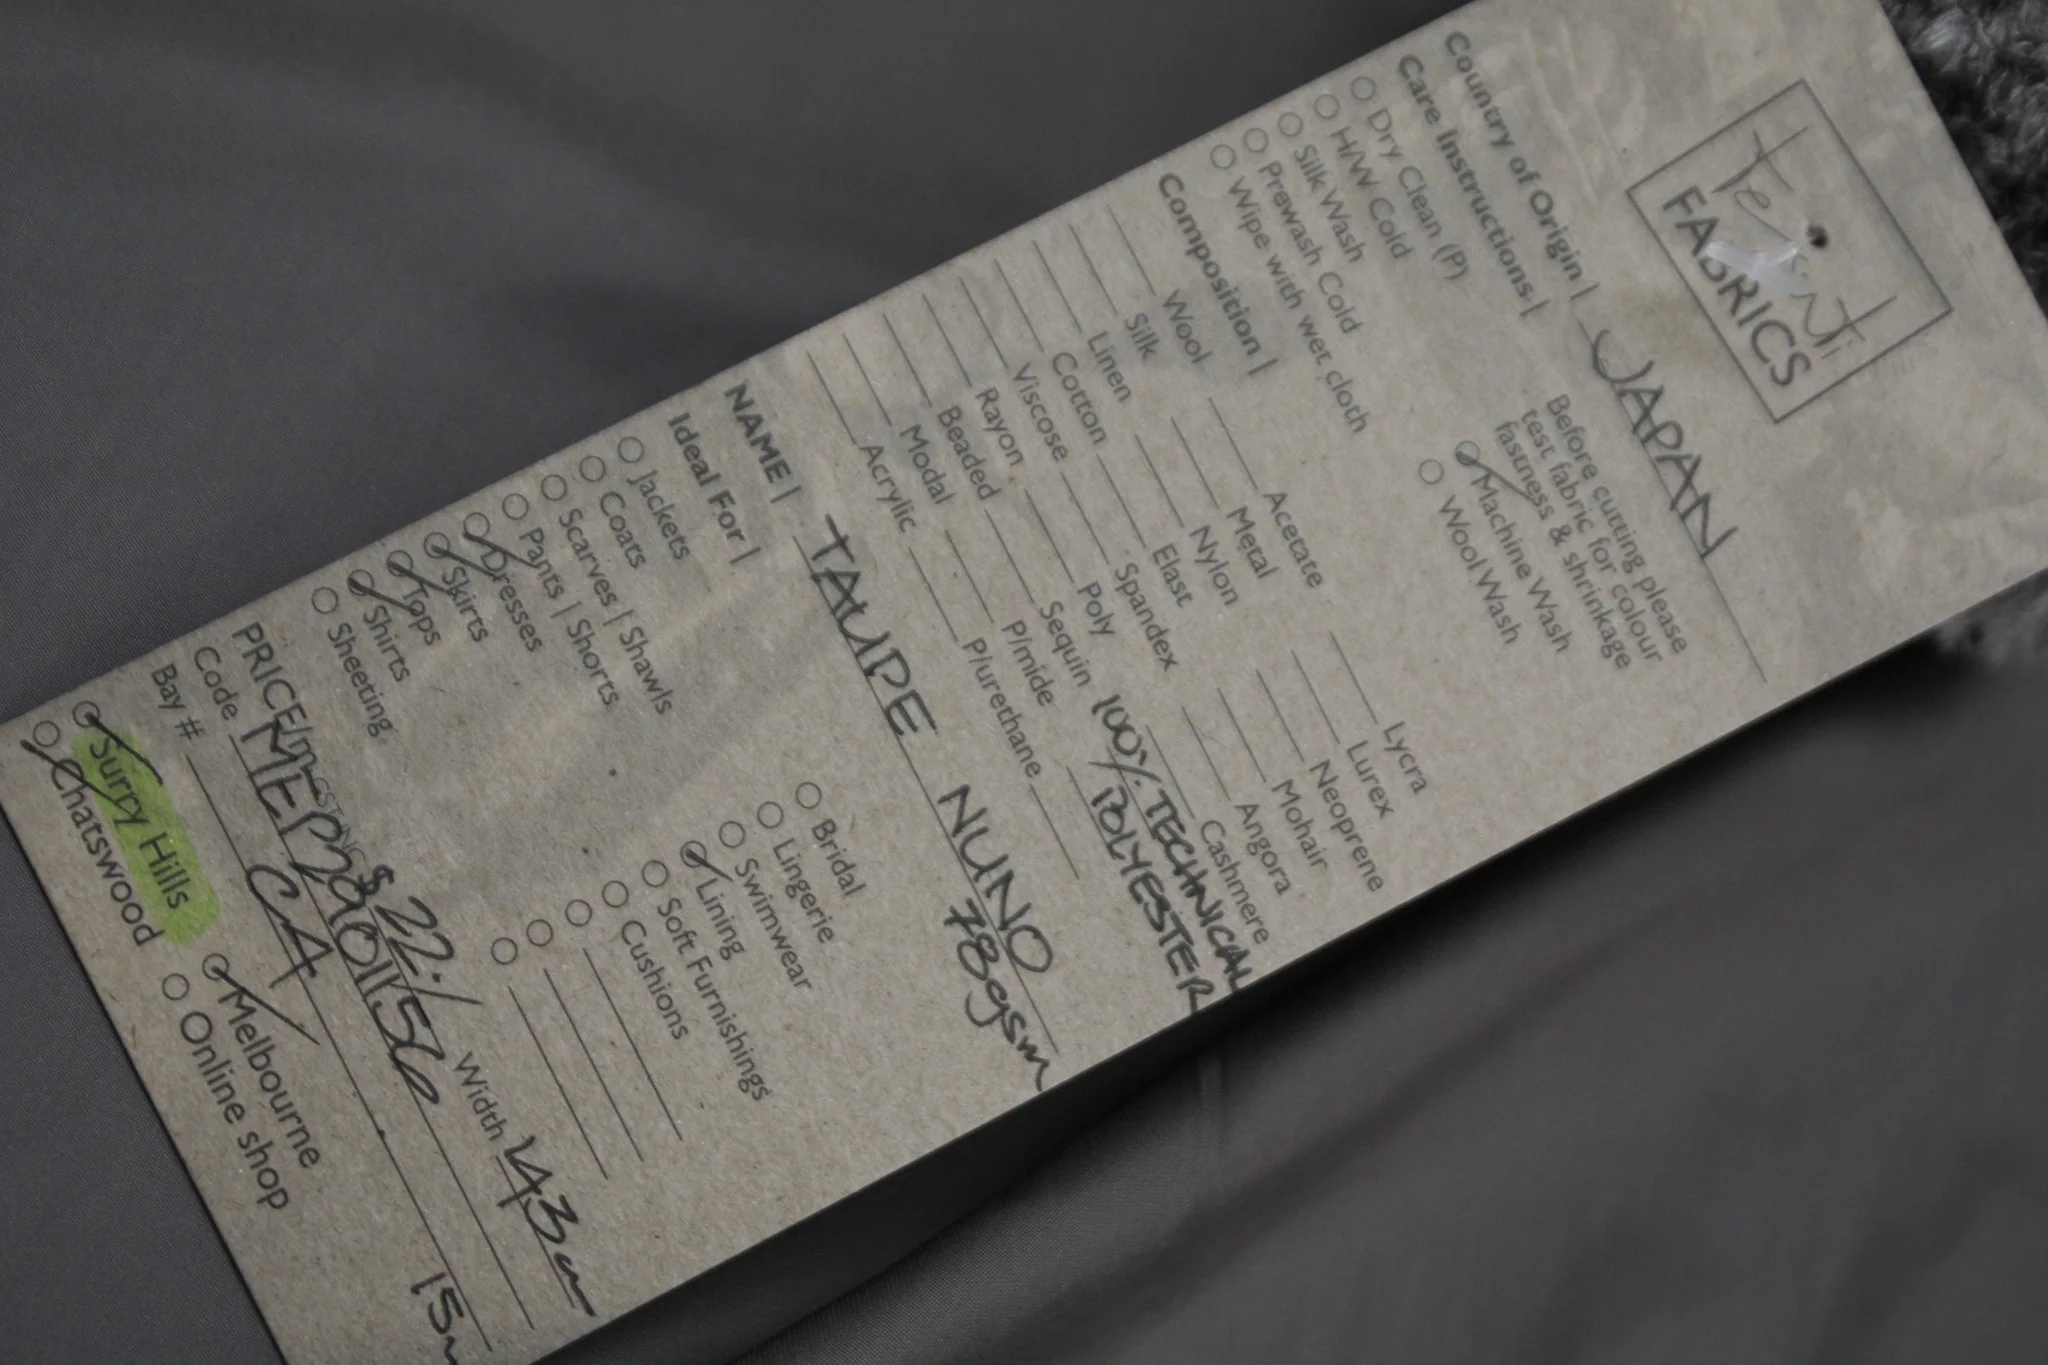 Tessuti
FABRICS
Country of Origin | JAPAN
Care Instructions |
Before cutting please
test fabric for colour
fastness & shrinkage
Dry Clean (P)
H/W Cold
Silk Wash
Prewash Cold
Wipe with wet cloth
Machine Wash
Wool Wash
Composition |
Wool
Silk
Linen
Cotton
Viscose
Rayon
Beaded
Modal
Acrylic
Acetate
Metal
Nylon
Elast
Spandex
Poly 100% TECHNICAL
POLYESTER
Sequin
P/mide
P/urethane
Lycra
Lurex
Neoprene
Mohair
Angora
Cashmere
NAME | TAUPE NUNO
78gsm
Ideal For |
Jackets
Coats
Scarves | Shawls
Pants | Shorts
Dresses
Skirts
Tops
Shirts
Sheeting
Bridal
Lingerie
Swimwear
Lining
Soft Furnishings
Cushions
PRICE/m $22./ Width 143cm
Code
Bay # CA 15m
Surry Hills
Chatswood
Melbourne
Online shop